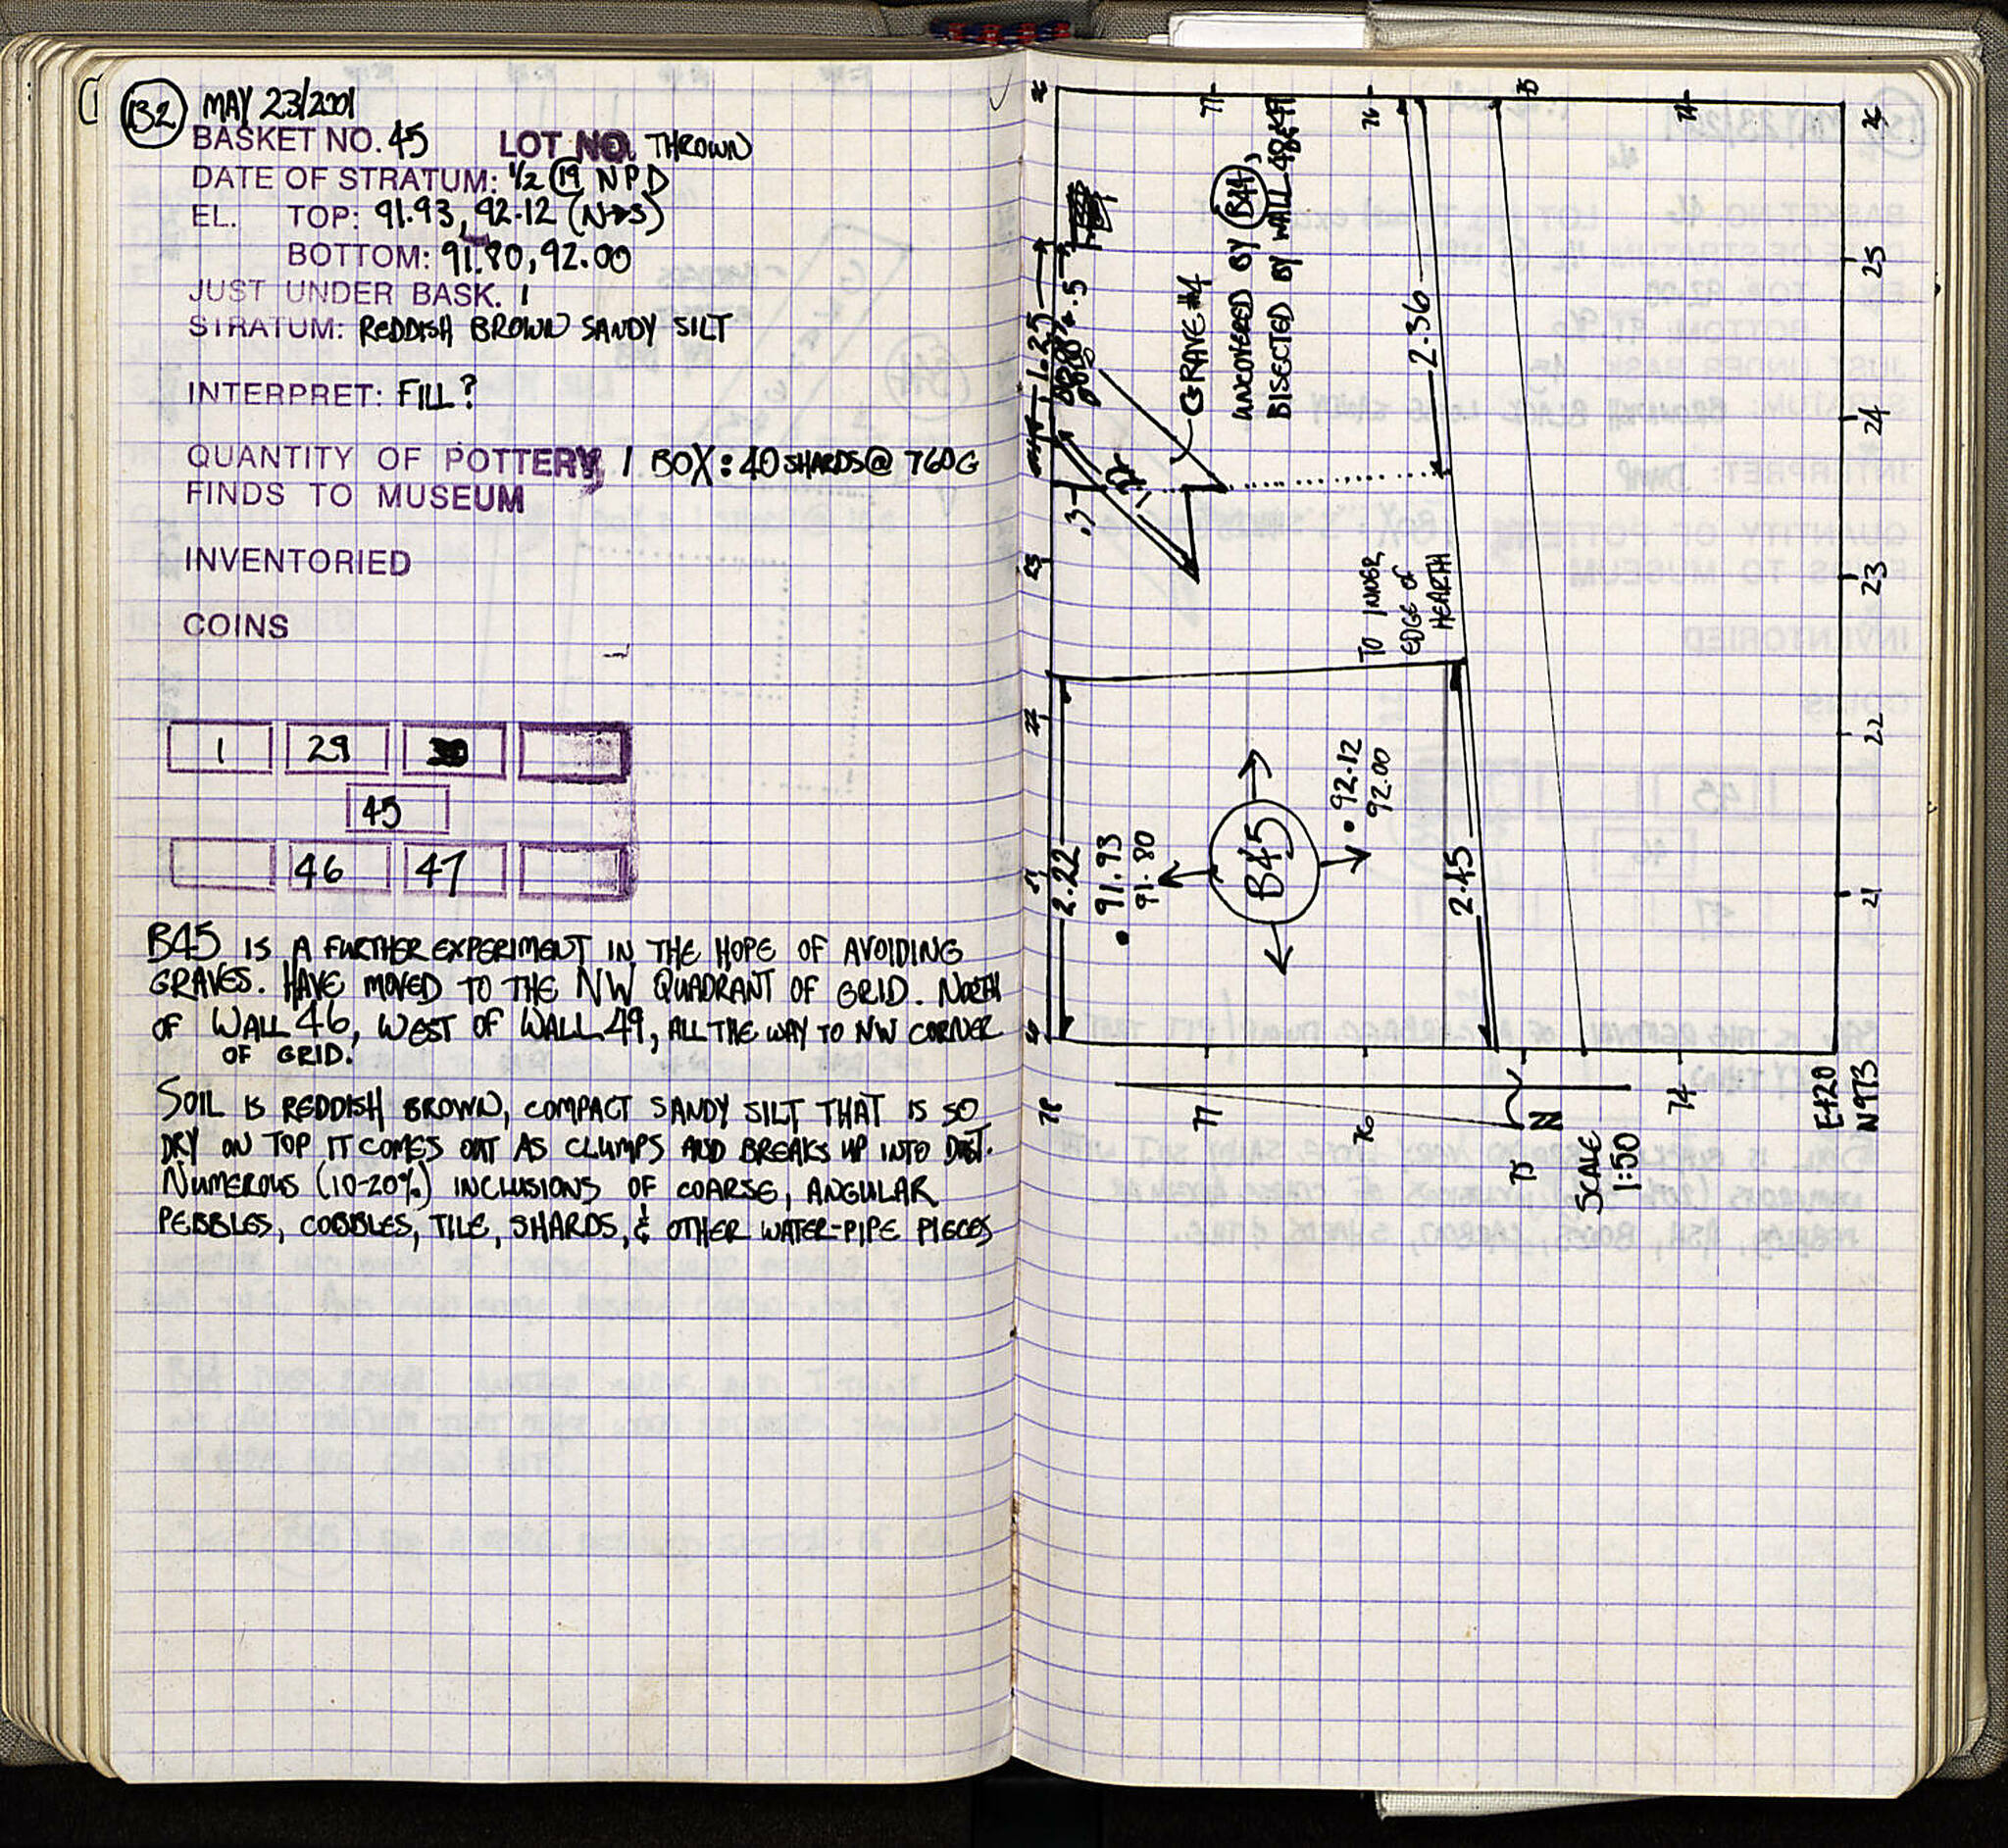 132 MAY 23/2001
BASKET NO. 45 LOT NO. THROWN
DATE OF STRATUM: 1/2 19 NPD
EL. TOP: 91.93, 92.12 (N→S)
BOTTOM: 91.80, 92.00
JUST UNDER BASK. 1
STRATUM: REDDISH BROWN SANDY SILT
INTERPRET: FILL?
QUANTITY OF POTTERY 1 BOX: 40 SHARDS @ 760G
FINDS TO MUSEUM
INVENTORIED
COINS
1 29
45
46 47
B45 IS A FURTHER EXPERIMENT IN THE HOPE OF AVOIDING
GRAVES. HAVE MOVED TO THE NW QUADRANT OF GRID. NORTH
OF WALL 46, WEST OF WALL 49, ALL THE WAY TO NW CORNER
OF GRID.
SOIL IS REDDISH BROWN, COMPACT SANDY SILT THAT IS SO
DRY ON TOP IT COMES OUT AS CLUMPS AND BREAKS UP INTO DUST.
NUMEROUS (10-20%) INCLUSIONS OF COARSE, ANGULAR
PEBBLES, COBBLES, TILE, SHARDS, & OTHER WATER-PIPE PIECES
26 77 76 75 74 26
25
24
23
22
21
1.25
.5
.3
GRAVE #4
UNCOVERED BY B44,
BISECTED BY WALL 48
2.36
TO INNER
EDGE OF
HEARTH
23
22
21
2.22
91.93
91.80
B45
92.12
92.00
2.45
78 77 76 75 74
N
SCALE
1:50
E420
N973